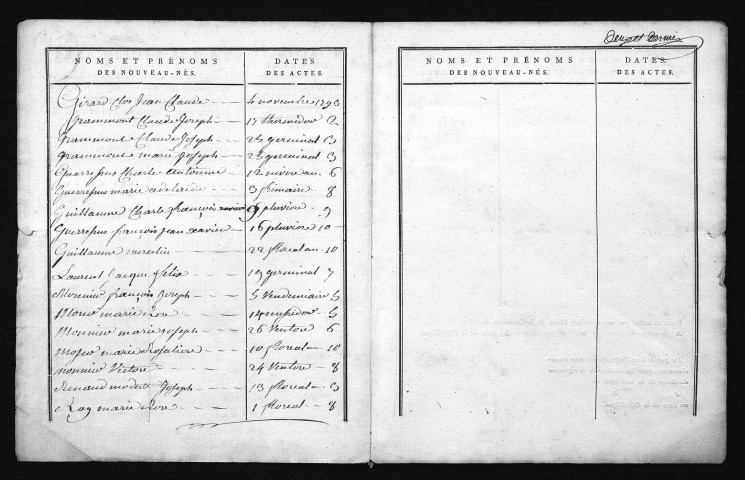 NOMS ET PRÉNOMS DES NOUVEAU-NÉS. DATES DES ACTES.
Girard Clos Jean Claude 4 novembre 1793
Grammont Claude Joseph 17 thermidor 2
Grammont Claude Joseph 25 germinal 3
Grammont marie Joseph 25 germinal 3
Guerrepus Charle antoinne 12 nivose an 6
Guerrepus marie adelaide 3 frimaire 8
Guillaume Charle françois xavier pluviose 9
Guerrepus francois jean xavier 16 pluviose 10
Guillaume marcelin 22 floreal an 10
Laurent Jacque felix 19 germinal 7
Monnier françois Joseph 5 Vendemiaire 5
marie 14 5
Monnier marie joseph 26 Ventose 6
marie Rosalie 10 floreal an 10
monnier Victore 24 Ventose 8
Renaud modeste Joseph 13 floreal 3
Ray marie 1 floreal 8
NOMS ET PRÉNOMS DES NOUVEAU-NÉS. DATES DES ACTES.